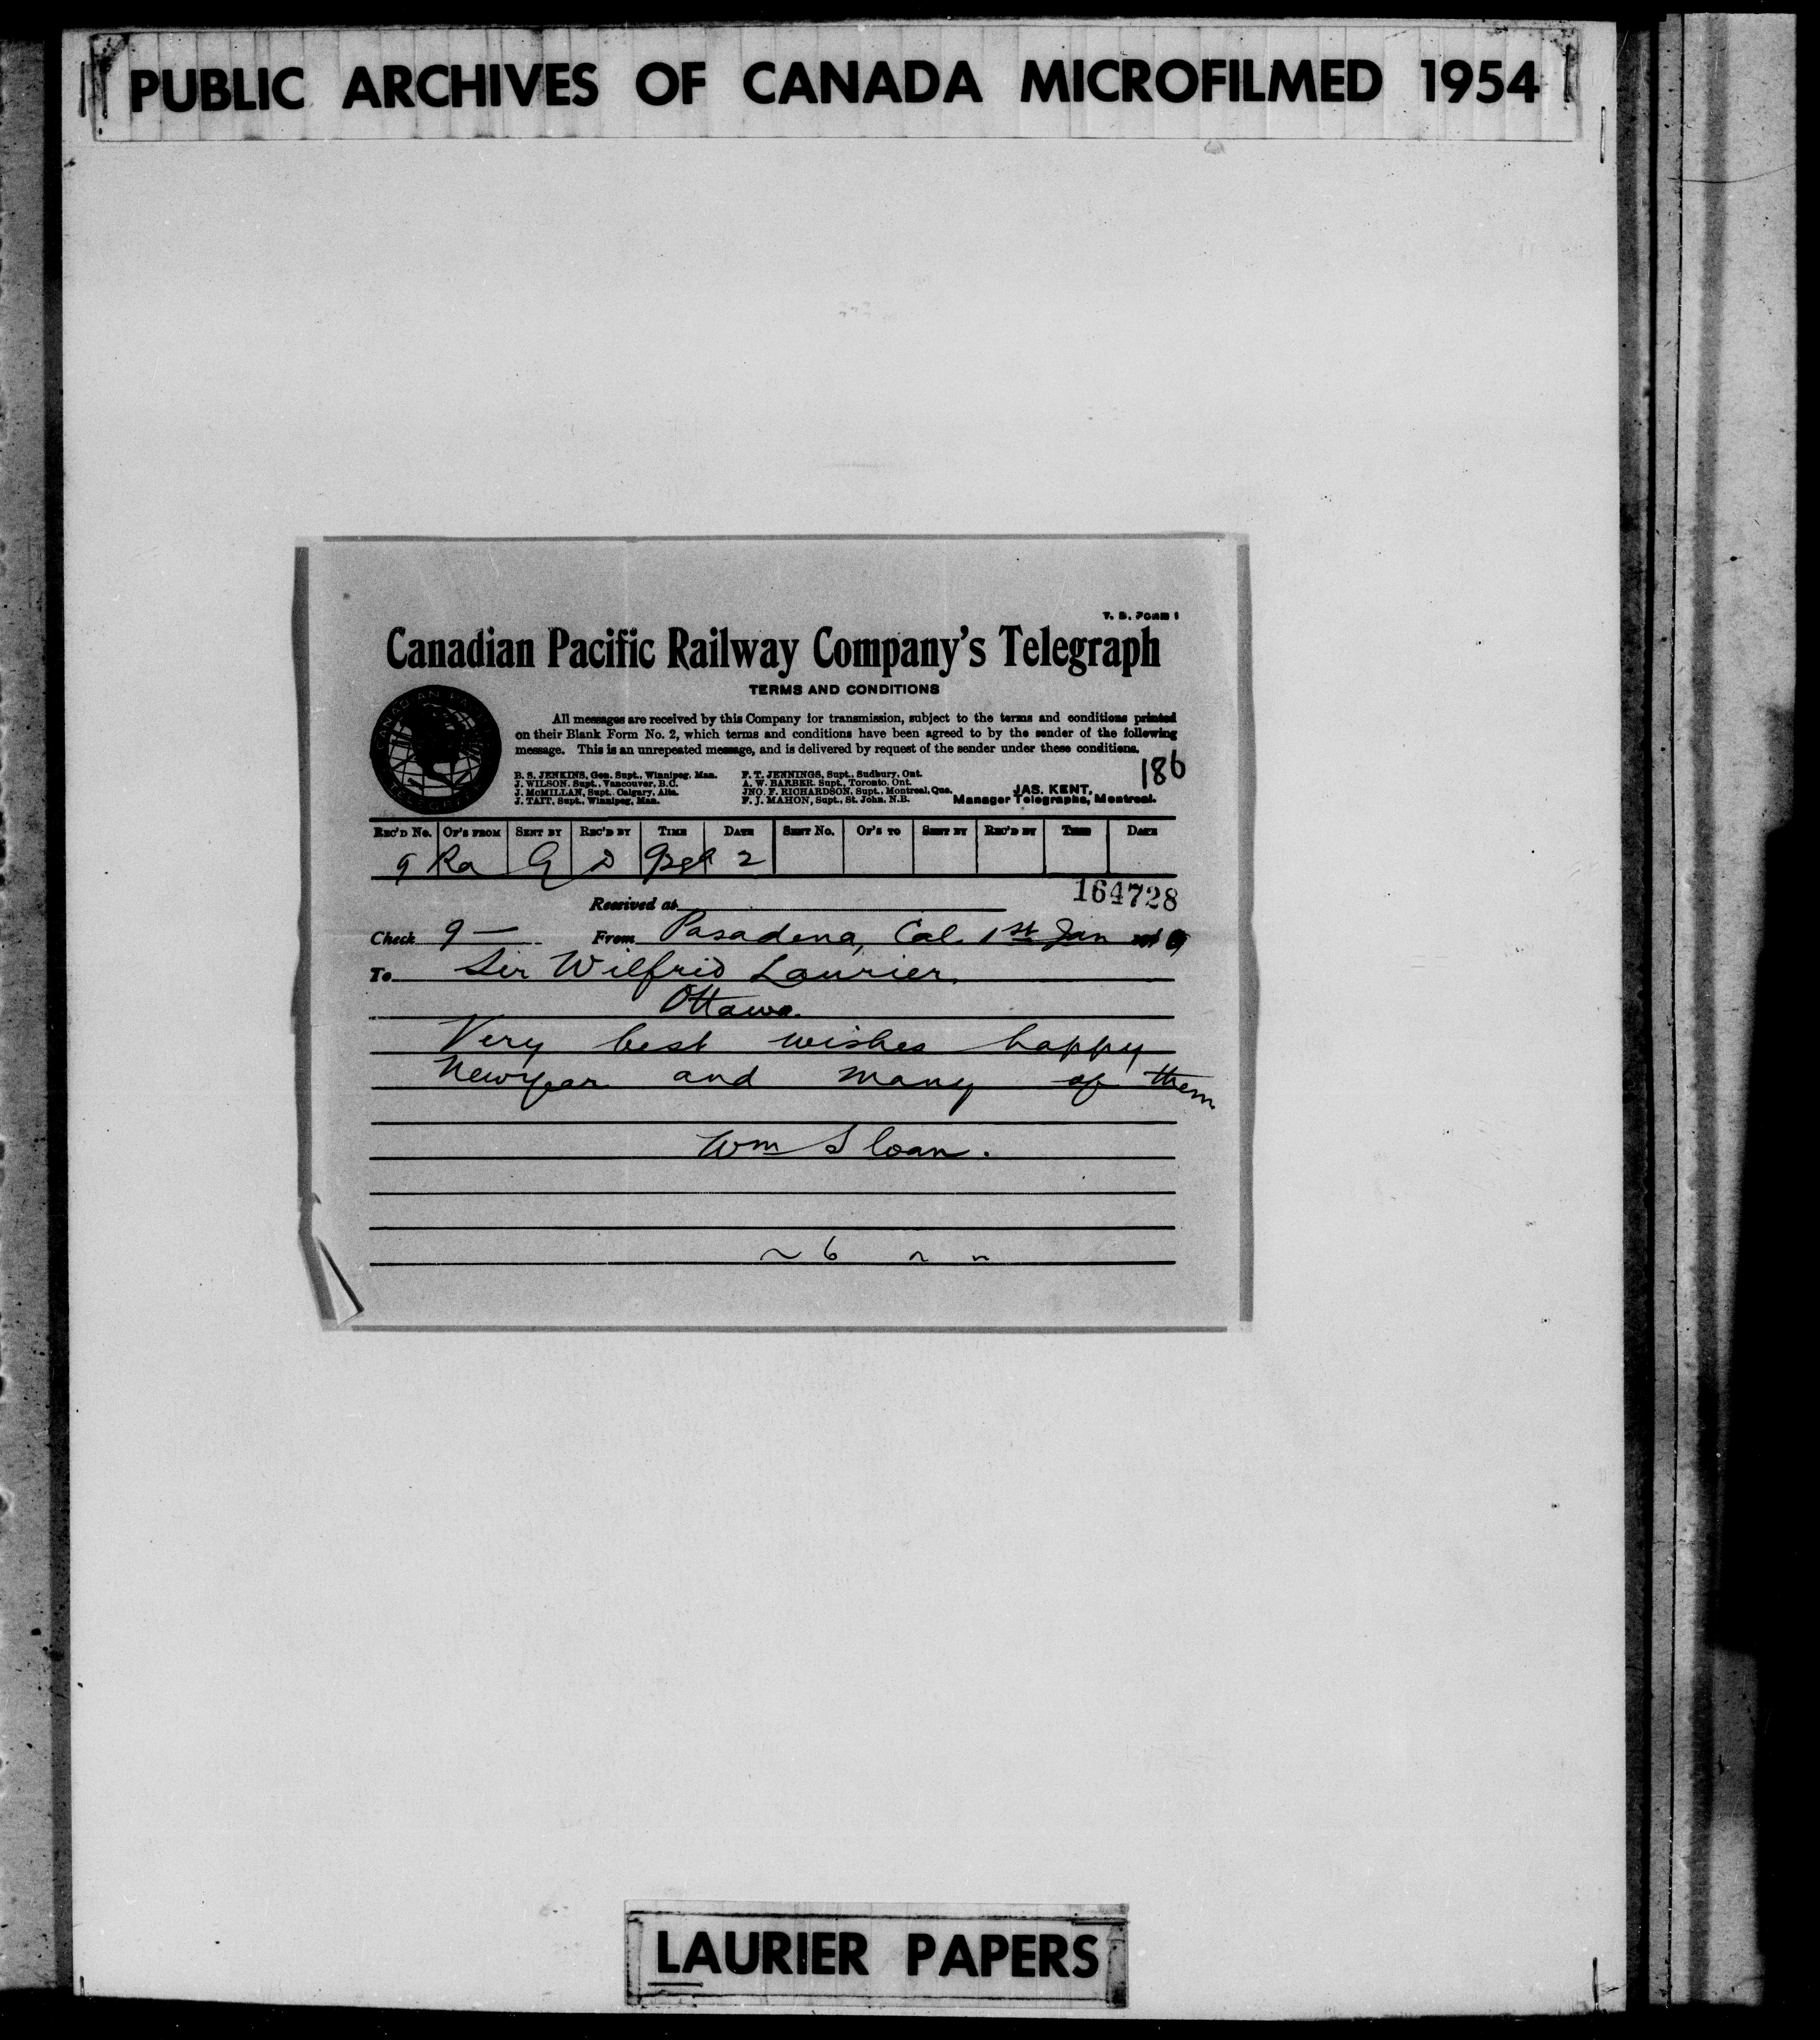 PUBLIC ARCHIVES OF CANADA MICROFILMED 1954
T. D. FORM 1
Canadian Pacific Railway Company's Telegraph
TERMS AND CONDITIONS
All messages are received by this Company for transmission, subject to the terms and conditions printed
on their Blank Form No. 2, which terms and conditions have been agreed to by the sender of the following
message. This is an unrepeated message, and is delivered by request of the sender under these conditions.
186
B. S. JENKINS, Gen. Supt., Winnipeg, Man.
J. WILSON, Supt., Vancouver, B.C.
J. McMILLAN, Supt. Calgary, Alta.
J. TAIT, Supt., Winnipeg, Man.
F. T. JENNINGS, Supt., Sudbury, Ont.
A. W. BARBER, Supt., Toronto, Ont.
JNO. F. RICHARDSON, Supt., Montreal, Que.
F. J. MAHON, Supt., St. John, N.B.
JAS. KENT,
Manager Telegraphs, Montreal.
CANADIAN PACIFIC
TELEGRAPH
REC'D No. OP'S FROM SENT BY REC'D BY TIME DATE SENT No. OP'S TO SENT BY REC'D BY TIME DATE
9 Ra G D 2
164728
Received at
Check 9 — From Pasadena, Cal. 1st Jan
To Sir Wilfrid Laurier,
Ottawa.
Very best wishes happy
Newyear and many of them
Wm Sloan.
6
LAURIER PAPERS